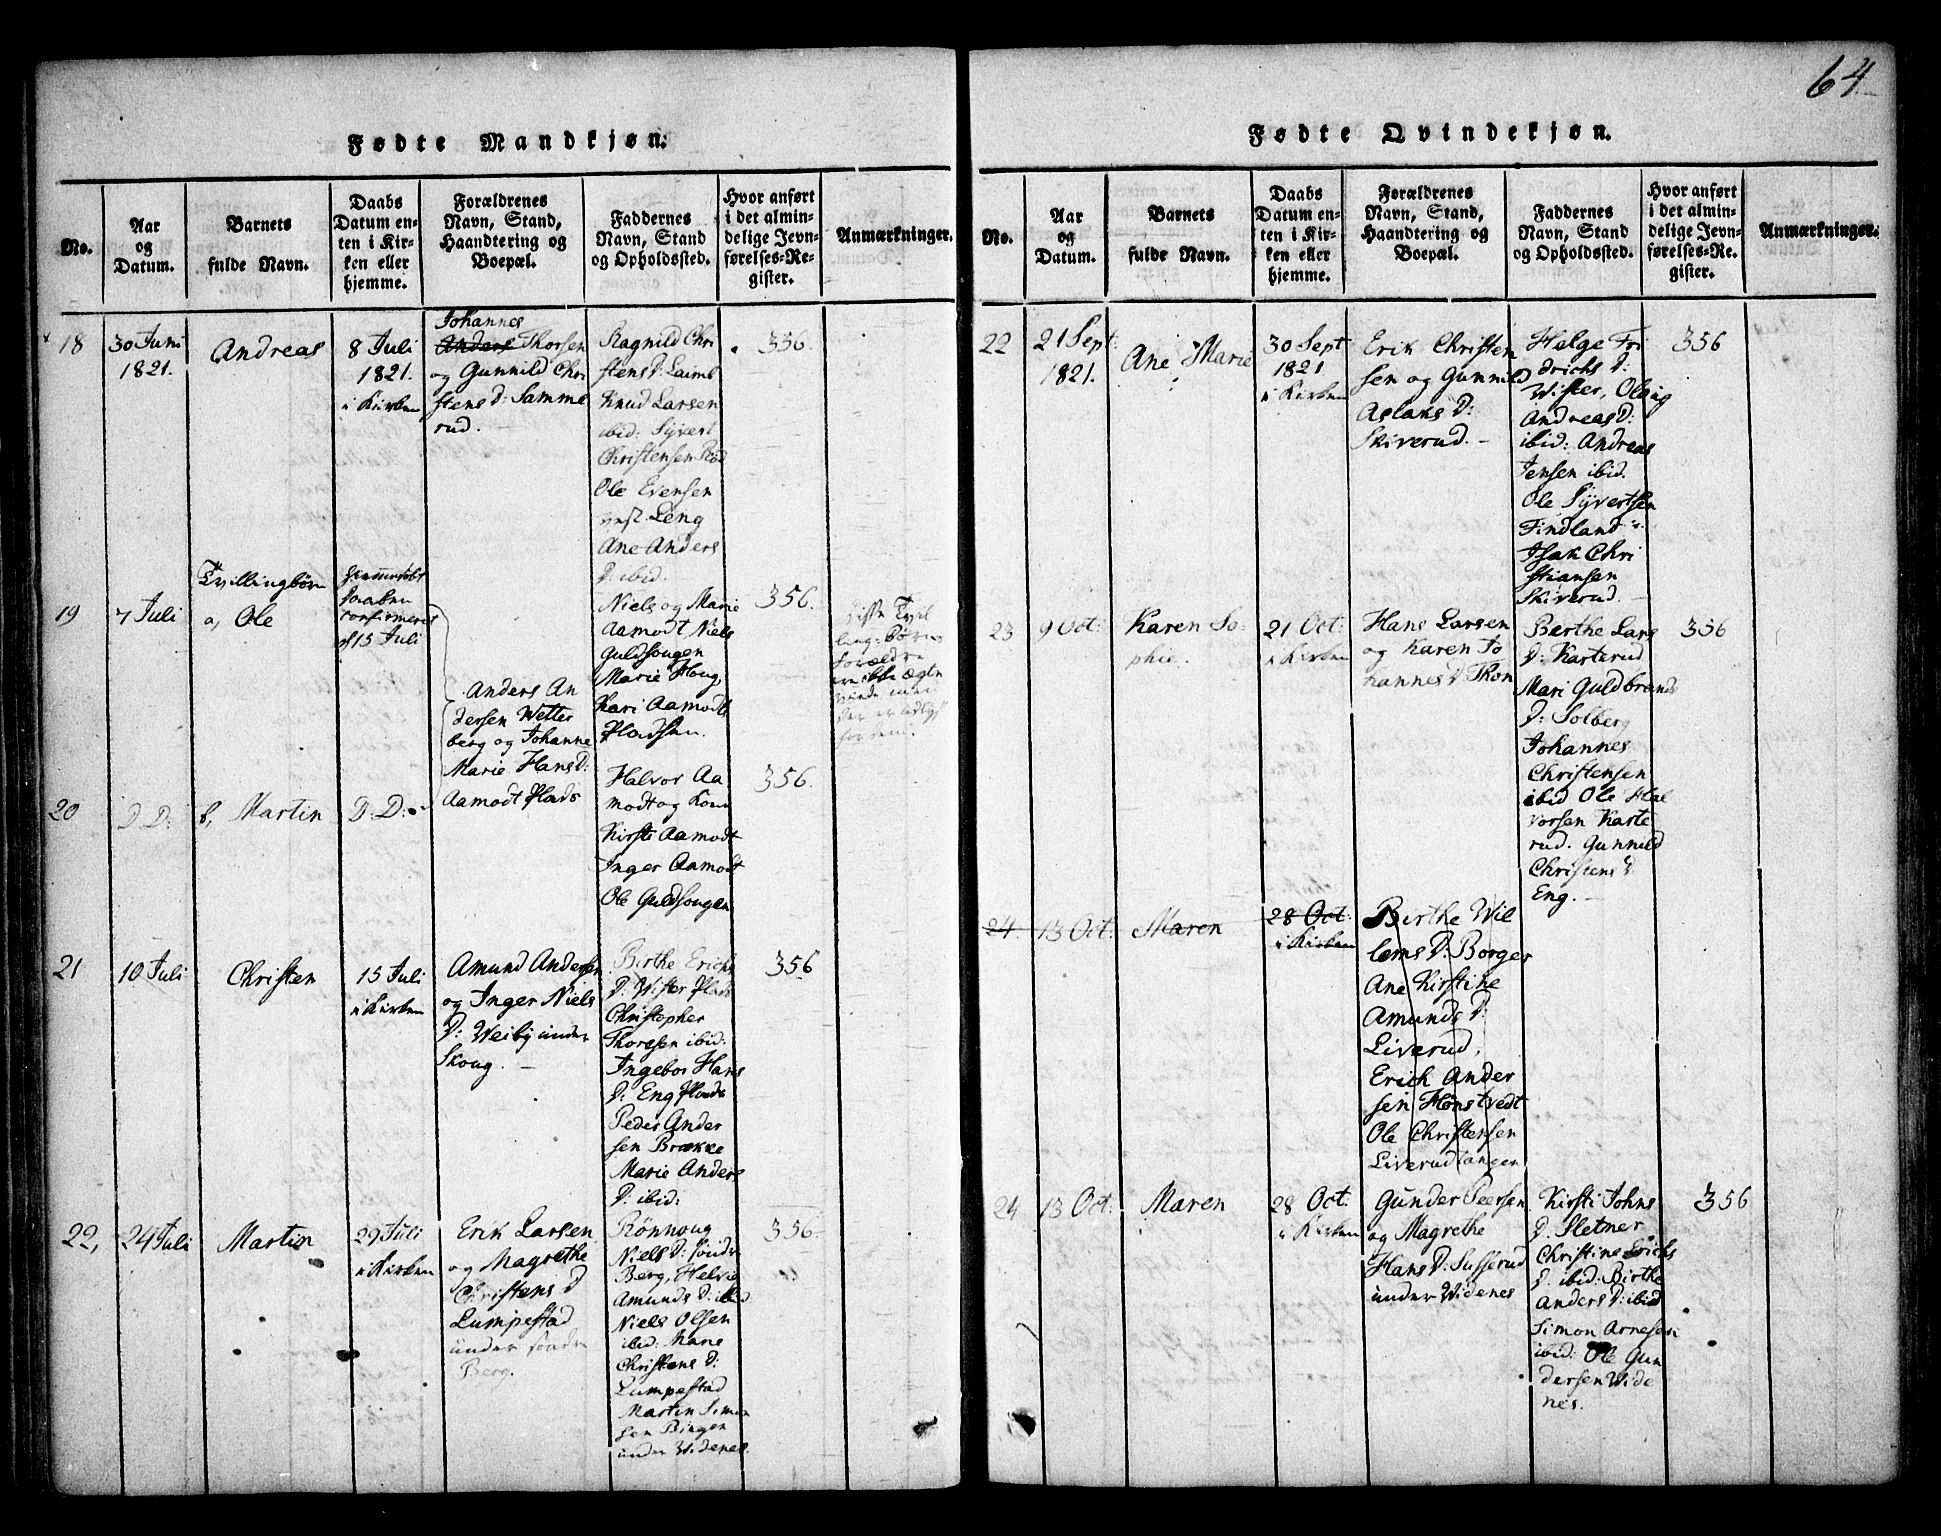 64.
Fødte Mandkjøn:
No.
Aar
og
Datum.
Barnets
fulde Navn.
Daabs
Datum en-
ten i Kir-
ken eller
hjemme.
Forældrenes
Navn, Stand,
Haandtering og
Boepæl.
Faddernes
Navn, Stand
og Opholdssted.
Hvor anført
i det almin-
delige Jevn-
førelses-Re-
gister.
Anmærkninger.
18
30 Juni
1821.
Andreas
8 Juli
1821.
i Kirken
Johannes
Anders Thorsen
og Gunnild Chri
stens D: Samme
rud.
Ragnild Chri
stens D:
Knud Larsen
ibid: Syvert
Christensen
Ole Evensen
Leng
Ane Anders
D: ibid.
356.
19
7 Juli
Tvillingbørn
a, Ole
hjemmedøbt
confirmeret
15 Juli
Anders An
dersen Wetter
berg og Johanne
Marie Hans D:
Aamodt Plads
Niels og Marie
Aamodt Niels
Guldsougen
Marie Houg,
Kari Aamodt
Pladsen.
356.
Disse Tvil
linge-Børns
Forældre
ere ikke ægte
20
D. D:
b, Martin
D: D:
Halvor Aa
modt og Kone
Kirsti Aamodt
Inger Aamodt
Ole Guldsougen
356.
21
10 Juli
Christen
15 Juli
i Kirken
Amund Andersen
og Inger Niels
D: Weiby under
Skoug.
Birthe Erichs
D: Wister Plads
Christopher
Thoresen ibid:
Ingebor Hans
D: Eng Plads
Peder Ander
sen Brække
Marie Anders
D: ibid:
356
22,
24 Juli
Martin
29 Juli
i Kirken
Erik Larsen
og Magrethe
Christens D
Lumpestad
under søndre
Berg.
Rønnoug
Niels D: søndr
Berg, Helvie
Amunds D: ibid
Niels Olsen
ibid: Marie
Christens D:
Lumpestad
Martin Simon
sen Bingen
under Widenes.
356.
Fødte Qvindekjøn.
No.
Aar
og
Datum.
Barnets
fulde Navn.
Daabs
Datum en-
ten i Kir-
ken eller
hjemme.
Forældrenes
Navn, Stand,
Haandtering og
Boepæl.
Faddernes
Navn, Stand
og Opholdssted.
Hvor anført
i det almin-
delige Jevn-
førelses-Re-
gister.
Anmærkninger.
22
21 Sept:
1821.
Ane Marie
30 Sept
1821
i Kirken
Erik Christen
sen og Gunnild
Aslaks D:
Skiverud.
Helge Fri
drichs D:
Wister, Olaug
Andreas D:
ibid: Andreas
Jensen ibid.
Ole Syvertsen
Findland
Isak Chri
stiansen
Skiverud.
356
23
9 Oct:
Karen So-
phie.
21 Oct:
i Kirken
Hans Larsen
og Karen Jo
hannes D Thon
Berthe Lars
D: Karterud
Mari Guldbrands
D: Solberg
Johannes
Christensen
ibid Ole Hal
vorsen Karte
rud. Gunnild
Christens D
Eng.
356
24.
13 Oct:
Maren
28 Oct:
i Kirken
Birthe Wil
lems D: Borger
Ane Kirstine
Amunds D:
Liverud,
Erich Ander
sen Hønstvedt
Ole Christensen
Liverudtangen
24
13 Oct:
Maren
28 Oct:
i Kirken
Gunder Peersen
og Magrethe
Hans D: Susserud
under Widenes
Kirsti Johns
D. Sletner
Christine Erichs
D: ibid: Birthe
Anders D: ibid
Simon Arnesen
ibid: Ole Gun
dersen Wide
nes.
356